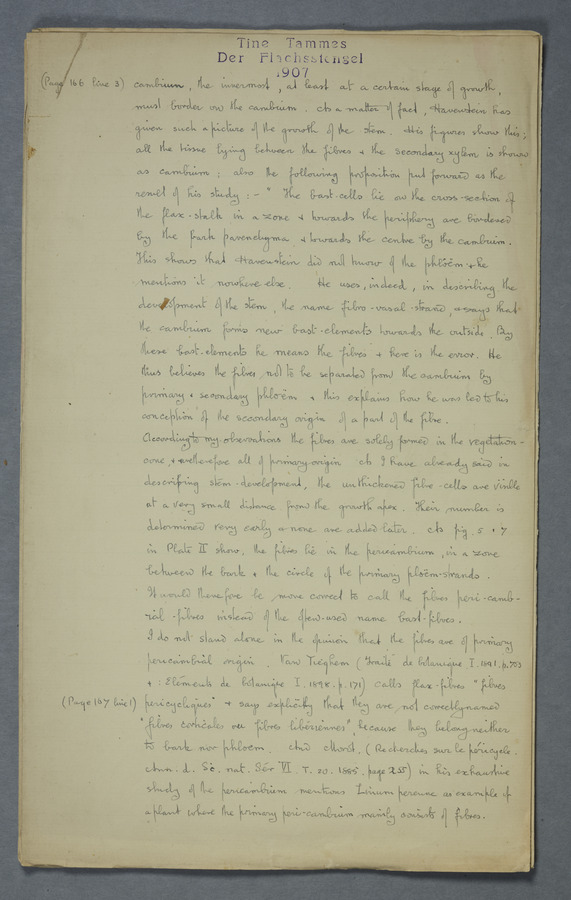 Tine Tammes
Der Flachsstengel
1907
(Page 166 line 3) cambium, the innermost, at least at a certain stage of growth,
must border on the cambium. As a matter of fact, Havenstein has
given such a picture of the growth of the stem. His figures show this;
all the tissue lying between the fibres & the secondary xylem is shown
as cambium; also the following proposition put forward as the
result of his study :- " The bast-cells lie on the cross-section of
the flax-stalk in a zone & towards the periphery are bordered
by the bark parenchyma & towards the centre by the cambium.
This shows that Havenstein did not know of the phloëm & he
mentions it nowhere else. He uses, indeed, in describing the
development of the stem, the name fibro-vasal-strand, & says that
the cambium forms new bast-elements towards the outside. By
these bast-elements he means the fibres & here is the error. He
thus believes the fibres not to be separated from the cambium by
primary & secondary phloëm & this explains how he was led to his
conception of the secondary origin of a part of the fibre.
According to my observations the fibres are solely formed in the vegetation-
cone, & are therefore all of primary origin. As I have already said in
describing stem-development, the unthickened fibre-cells are visible
at a very small distance from the growth apex. Their number is
determined very early & none are added later. As fig. 5 & 7
in Plate II show, the fibres lie in the pericambium, in a zone
between the bark & the circle of the primary ploëm-strands.
It would therefore be more correct to call the fibres peri-camb-
rial-fibres instead of the often-used name bast-fibres.
I do not stand alone in the opinion that the fibres are of primary
pericambial origin. Van Tieghem (Traité de botanique I. 1891. p. 753
& : Eléments de botanique I. 1898. p. 171) calls flax-fibres "fibres
(Page 167 line 1) péricycliques" & says explicitly that they are not correctly named
"fibres corticales ou fibres libériennes", because they belong neither
to bark nor phloem. And Morot. (Recherches sur le péricycle.
Ann. d. Sc. nat. Sér VI. T. 20. 1885. page 255) in his exhaustive
study of the pericambium mentions Linum perenne as example of
a plant where the primary peri-cambium mainly consists of fibres.